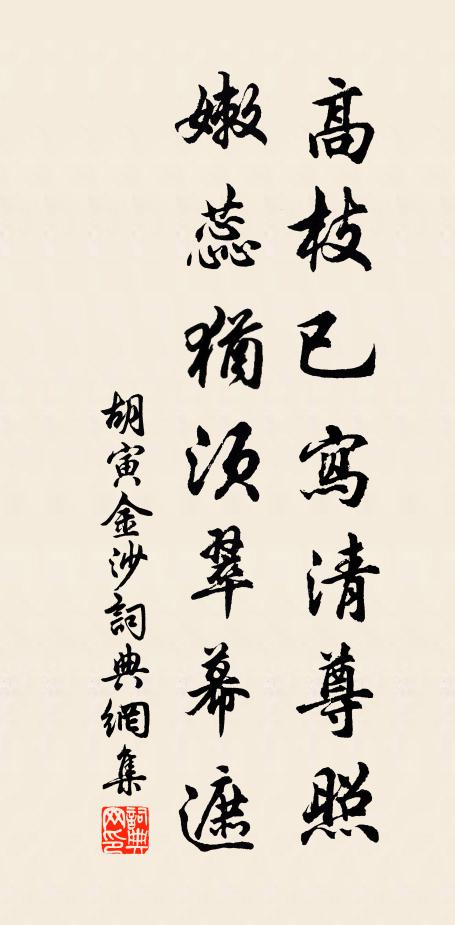 高枝已寫清尊照
嫩蕊猶須翠幕遮
胡寅金沙詞典網集
詞典網印